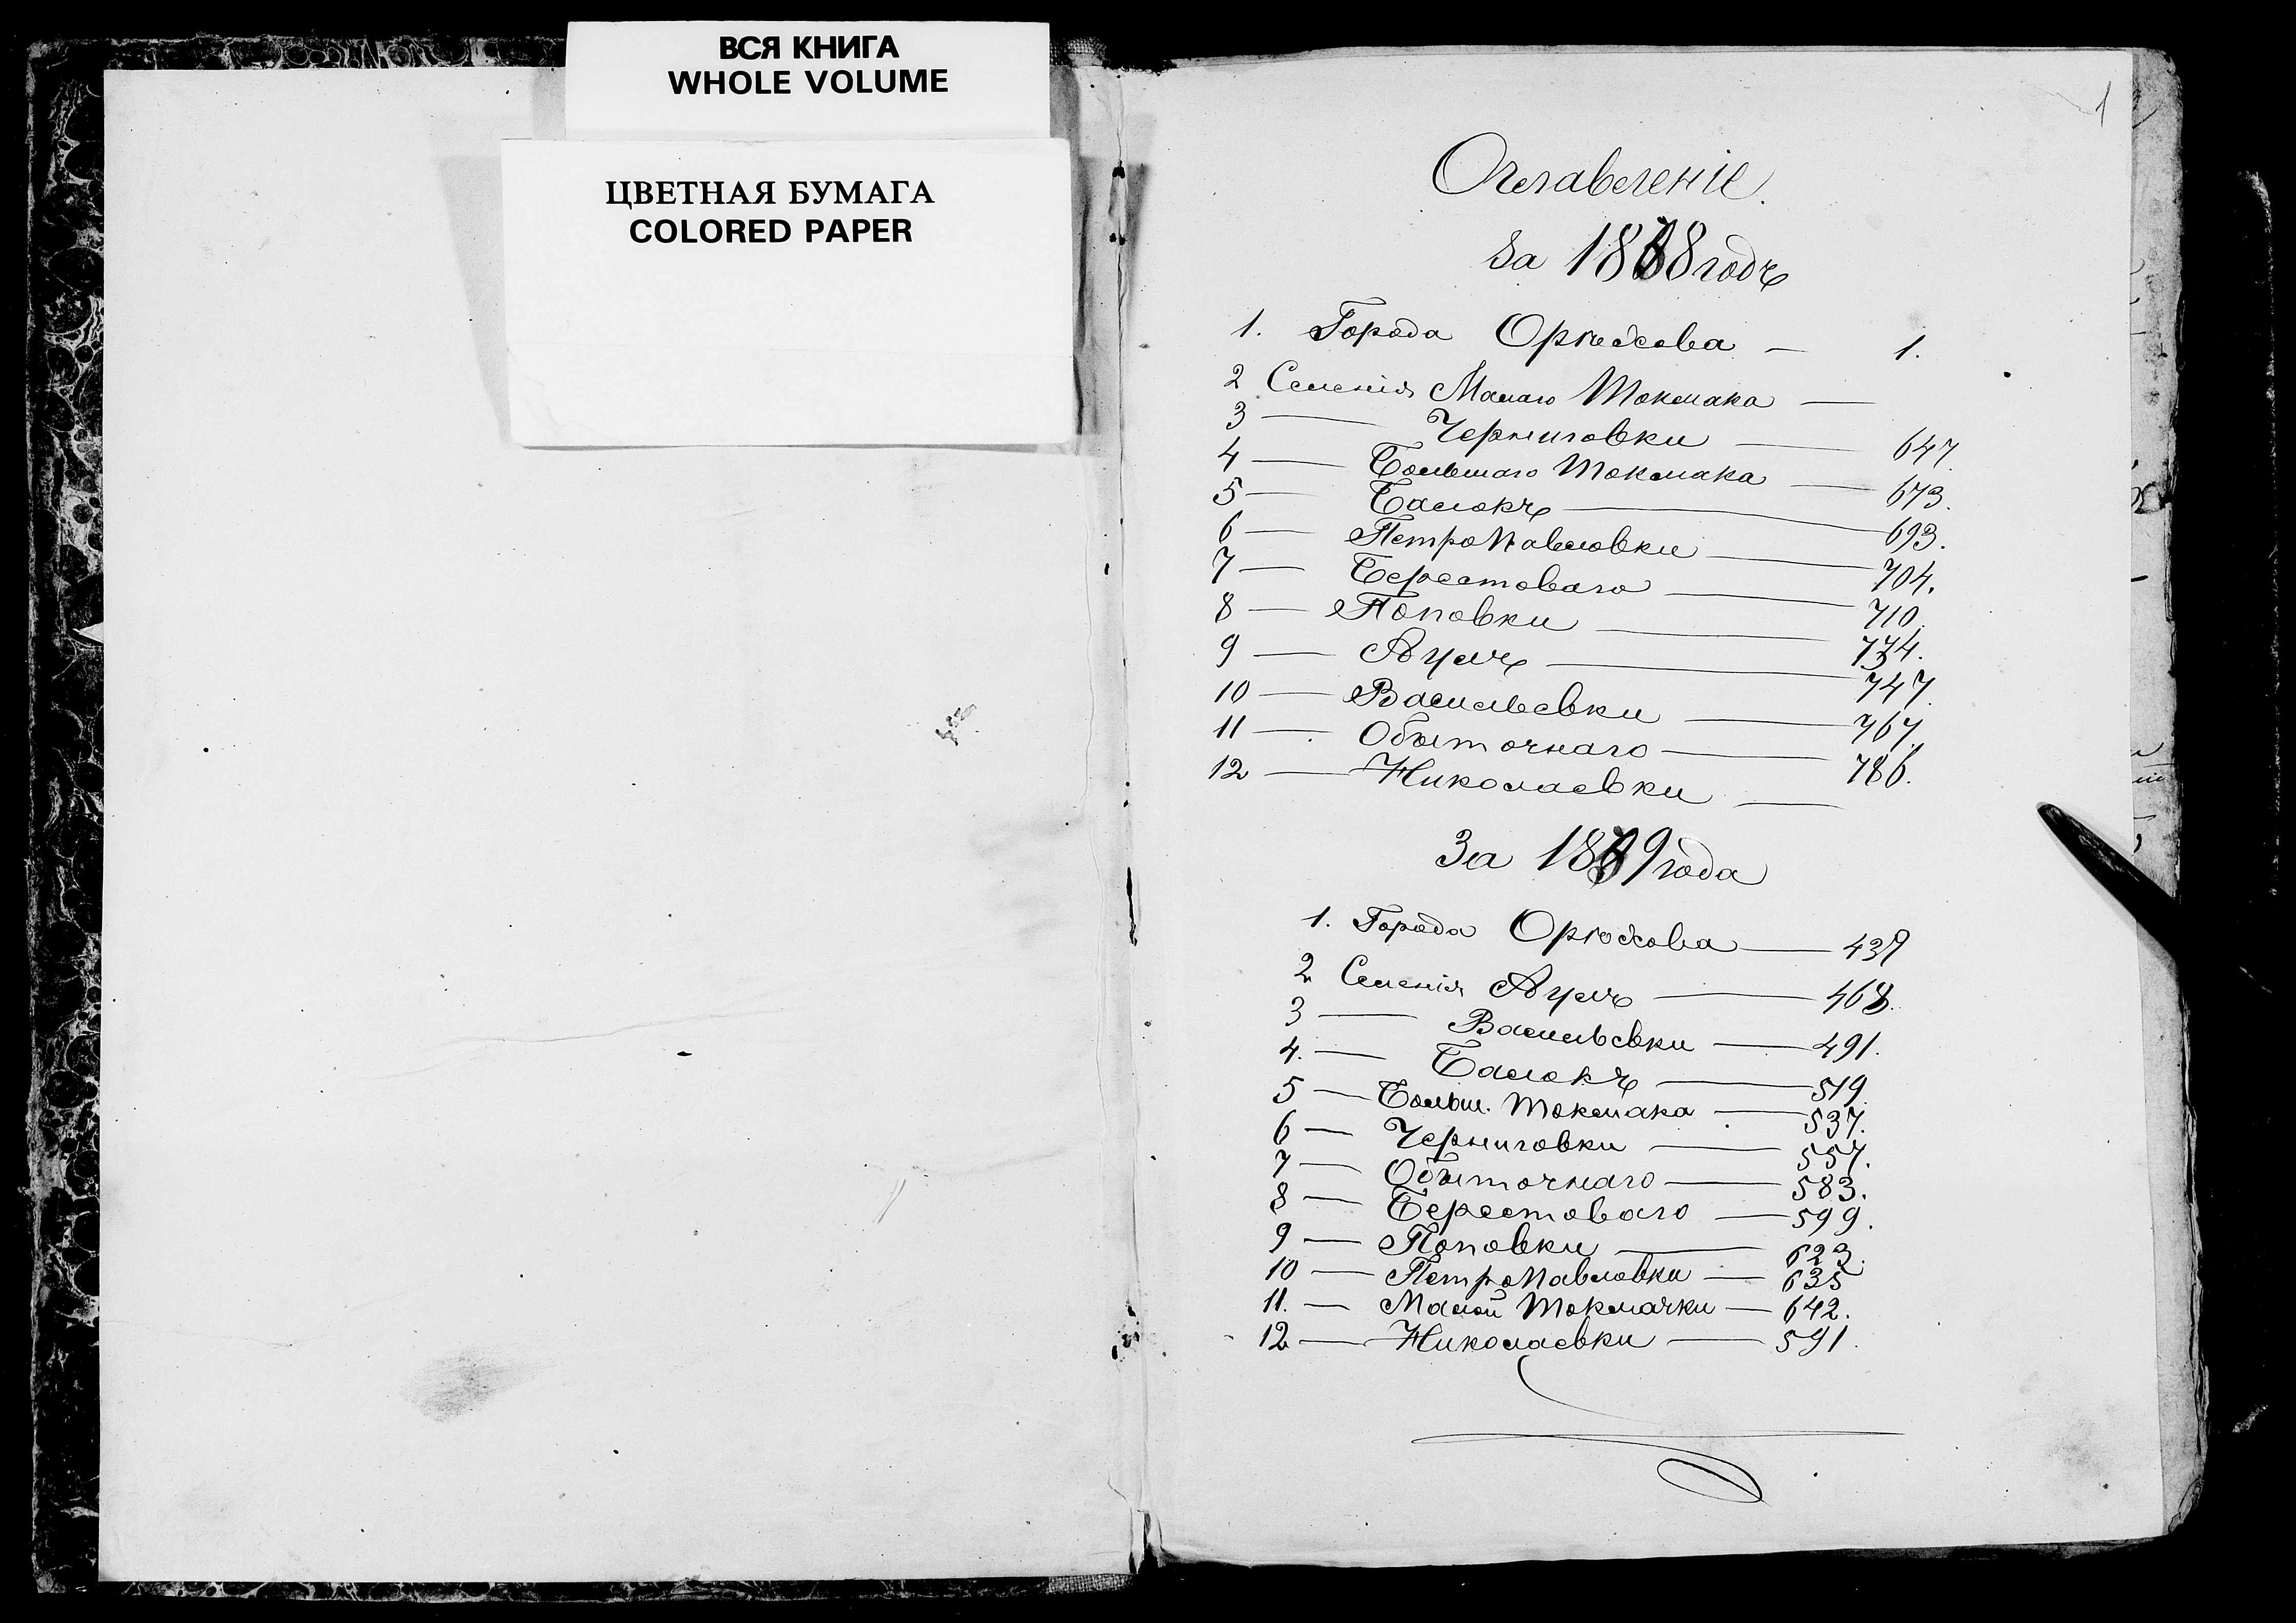 ВСЯ КНИГА
WHOLE VOLUME
ЦВЕТНАЯ БУМАГА
COLORED PAPER
1
Оглавленіе.
За 18 8 годъ
1. Города Орѣхова — 1.
2 Селенія Малаго Токмака —
3 — Черниговки — 647.
4 — Большаго Токмака — 673.
5 — Балокъ — 693.
6 — ПетроПавловки — 704.
7 — Берестоваго — 710
8 — Поповки — 734.
9 — Аулъ — 747.
10 — Васильевки — 767.
11 — Обыточнаго — 786.
12 — Николаевки —
За 18 9 года
1. Города Орѣхова — 439
2 Селенія Аулъ — 468.
3 — Васильевки — 491.
4. — Балокъ — 519.
5 — Больш. Токмака — 537.
6 — Черниговки — 557.
7 — Обыточнаго — 583.
8 — Берестоваго — 599.
9 — Поповки — 623.
10 — ПетроПавловки — 635
11. — Малой Токмачки — 642.
12 — Николаевки — 591.